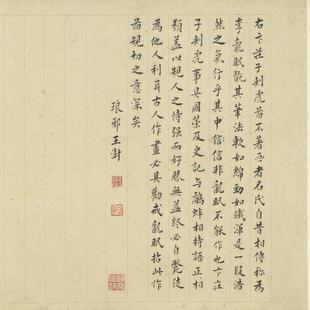 右卞莊子刺虎圖不著畫者名氏自昔相傳稱為
李龍眠觀其筆法軟如綿勁如鐵渾是一段浩
然之氣行乎其中信信非龍眠不能作也卞莊
子刺虎事具國策及史記與鷸蚌相持語正相
類蓋以狙人之恃强而好勝無益終必自斃徒
為他人利耳古人作畫必具勸戒龍眠拈此作
圖規切之意深矣
琅邪王澍